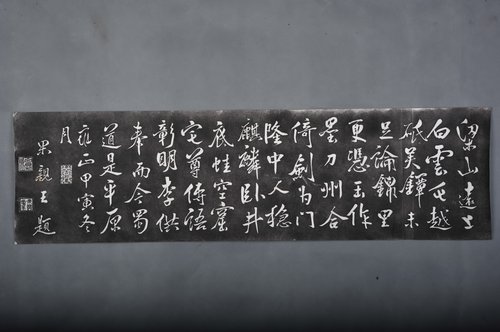 梁山遠上
白雲屯越
砥吴鐔未
足論錦里
更憑玉作
壘刀州合
倚劍為門
隆中人穩
麒麟卧井
底蛙空窟
宅尊傳語
彰明李供
奉而今蜀
道是平原
雍正甲寅冬
月
果親王題